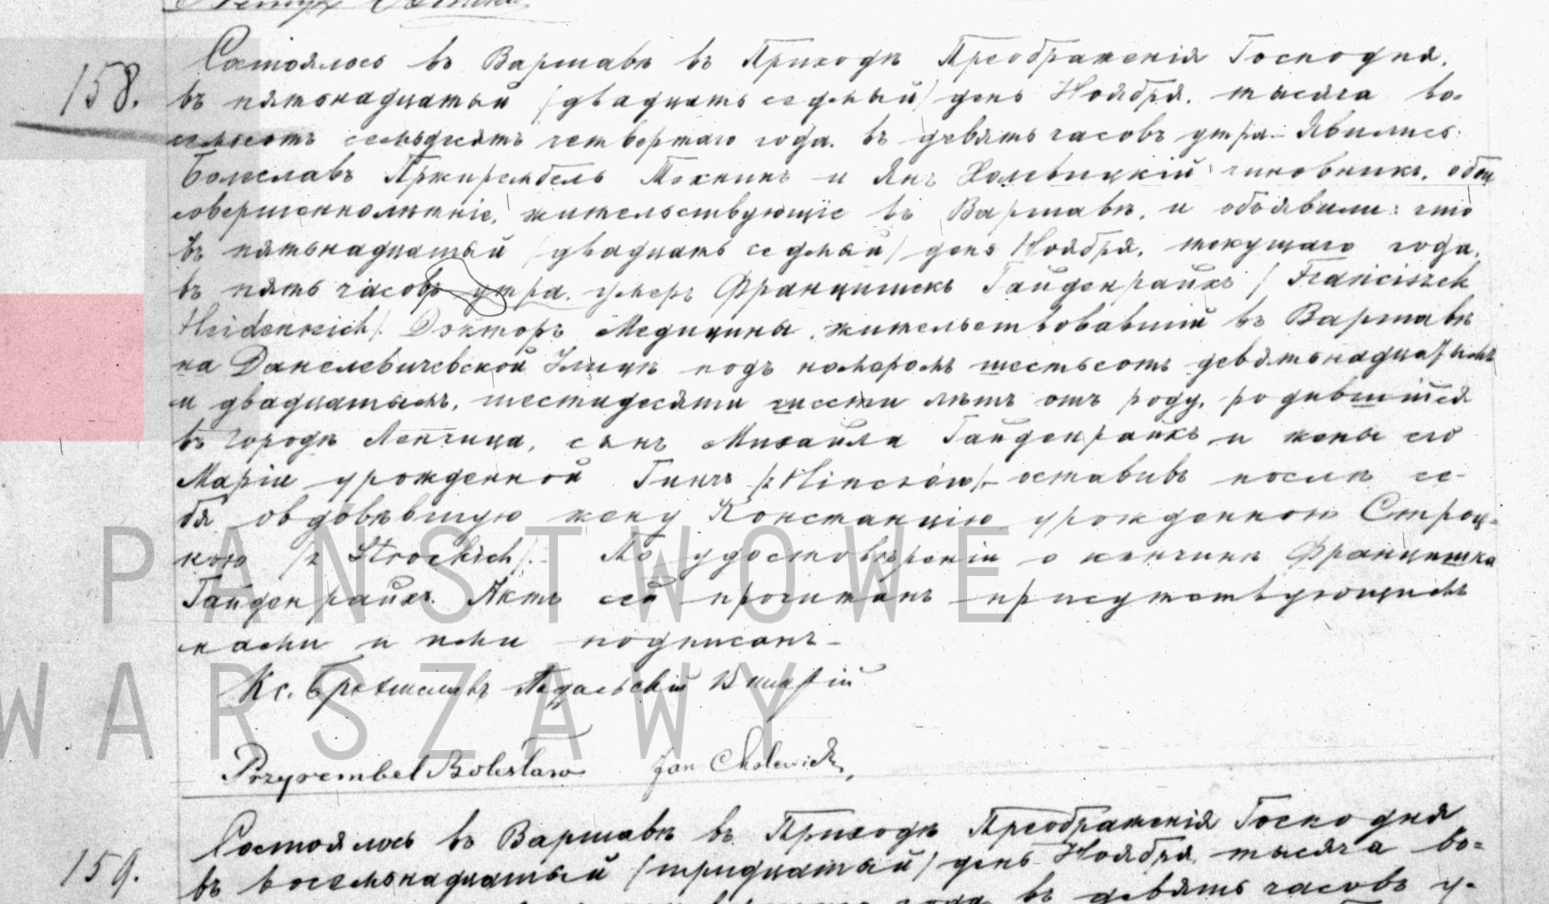 158.
Состоялось въ Варшавѣ въ Приходѣ Преображенія Господня,
въ пятьнадцатый /двадцать седьмый/ день Ноября, тысяча во-
семьсотъ семьдесятъ четвертаго года, въ девять часовъ утра. Явились:
Болеславъ Пржирембель Техникъ и Янъ Холевицкій чиновникъ, оба
совершеннолѣтніе, жительствующіе въ Варшавѣ, и объявили: что
въ пятьнадцатый /двадцать седьмый/ день Ноября, текущаго года,
въ пять часовъ утра, умеръ Францишекъ Гайденрайхъ /Franciszek
Heidenreich/ Докторъ Медицины, жительствовавшій въ Варшавѣ
на Данелевичевской Улицѣ подъ номеромъ шестьсотъ девятьнадцатымъ
и двадцатымъ, шестидесяти шести лѣтъ отъ роду, родившійся
въ городѣ Ленчица, сынъ Михаила Гайденрайхъ и жены его
Маріи урожденной Гинчъ /:Hinczów/- оставивъ послѣ се-
бя овдовѣвшую жену Констанцію урожденною Строц-
кою /z Strockich/.- По удостовѣреніи о кончинѣ Францишка
Гайденрайхъ. Актъ сей прочитанъ присутствующимъ
нами и ими подписанъ-
Кс.
Przyrembel Bolesław Jan Cholewicki
159.
Состоялось въ Варшавѣ въ Приходѣ Преображенія Господня
въ восемьнадцатый /тридцатый/ день Ноября, тысяча во-
года въ девять часовъ у-
PAŃSTWOWE
WARSZAWY